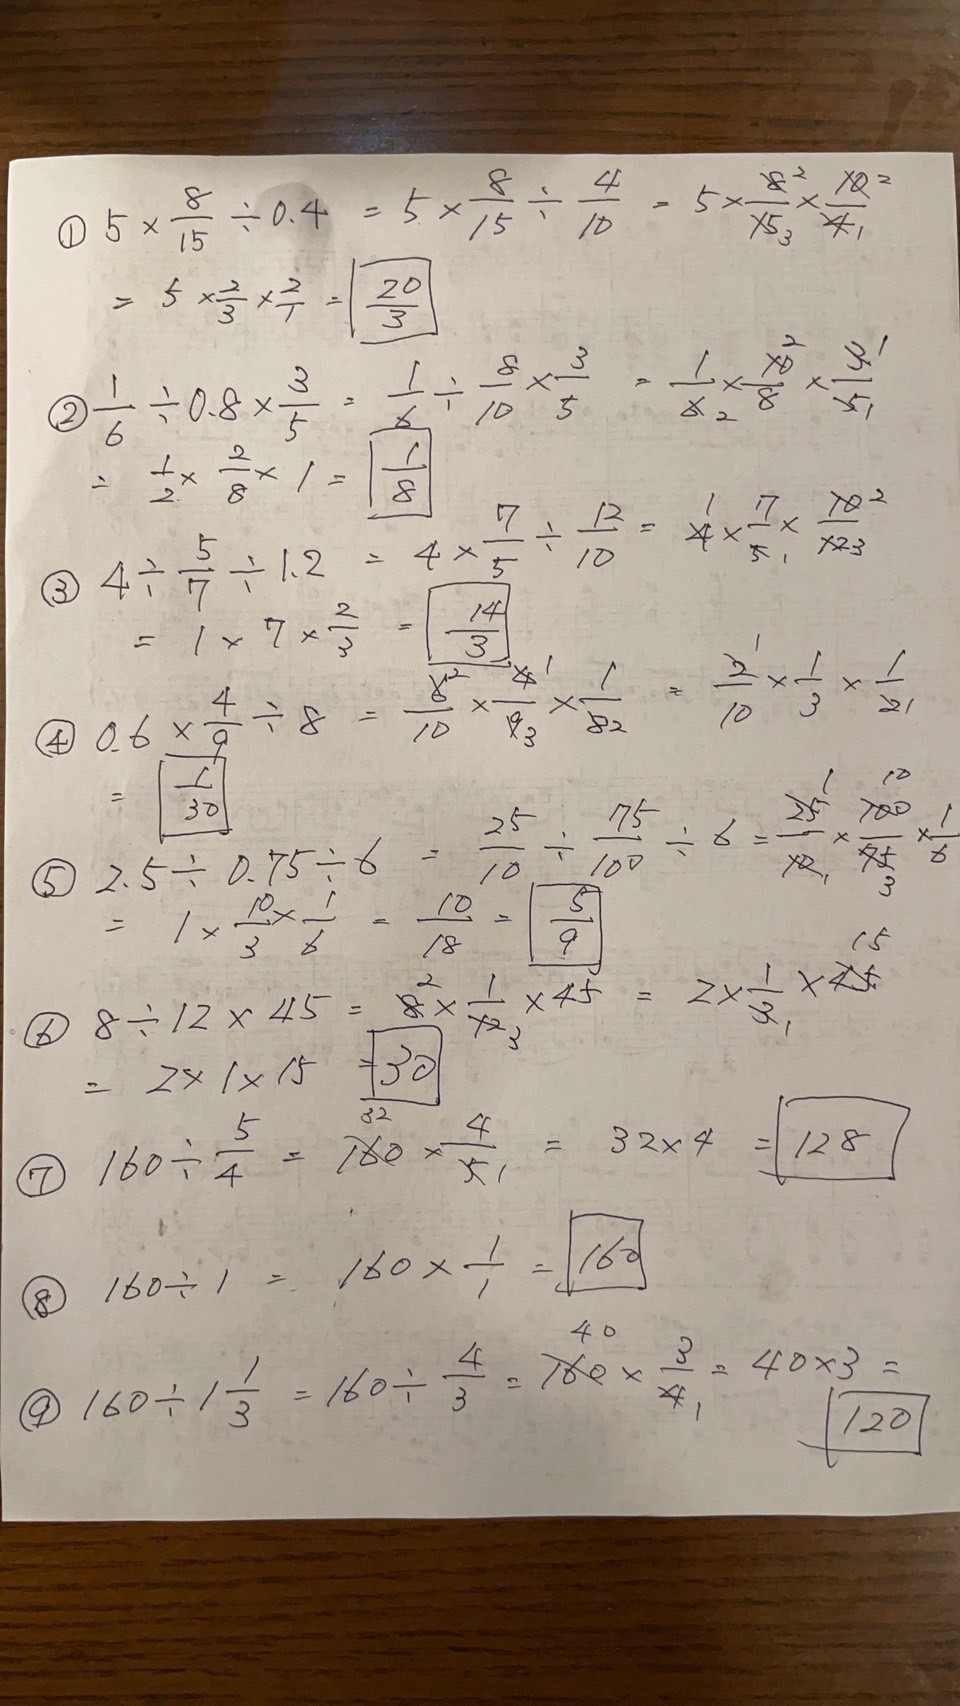 ① 5 × 8/15 ÷ 0.4 = 5 × 8/15 ÷ 4/10 = 5 × 8²/15₃ × 10²/4₁
= 5 × 2/3 × 2/1 = 20/3
② 1/6 ÷ 0.8 × 3/5 = 1/6 ÷ 8/10 × 3/5 = 1/6₂ × 10²/8 × 3¹/5₁
= 1/2 × 2/8 × 1 = 1/8
③ 4 ÷ 5/7 ÷ 1.2 = 4 × 7/5 ÷ 12/10 = ¹4 × 7/5₁ × 10²/12₃
= 1 × 7 × 2/3 = 14/3
④ 0.6 × 4/9 ÷ 8 = 6²/10 × 4¹/9₃ × 1/8₂ = 2¹/10 × 1/3 × 1/2₁
= 1/30
⑤ 2.5 ÷ 0.75 ÷ 6 = 25/10 ÷ 75/100 ÷ 6 = 25¹/10₁ × 100¹⁰/75₃ × 1/6
= 1 × 10/3 × 1/6 = 10/18 = 5/9
⑥ 8 ÷ 12 × 45 = 8² × 1/12₃ × 45 = 2 × 1/3₁ × 45¹⁵
= 2 × 1 × 15 = 30
⑦ 160 ÷ 5/4 = 160³² × 4/5₁ = 32 × 4 = 128
⑧ 160 ÷ 1 = 160 × 1/1 = 160
⑨ 160 ÷ 1 1/3 = 160 ÷ 4/3 = 160⁴⁰ × 3/4₁ = 40 × 3 =
120